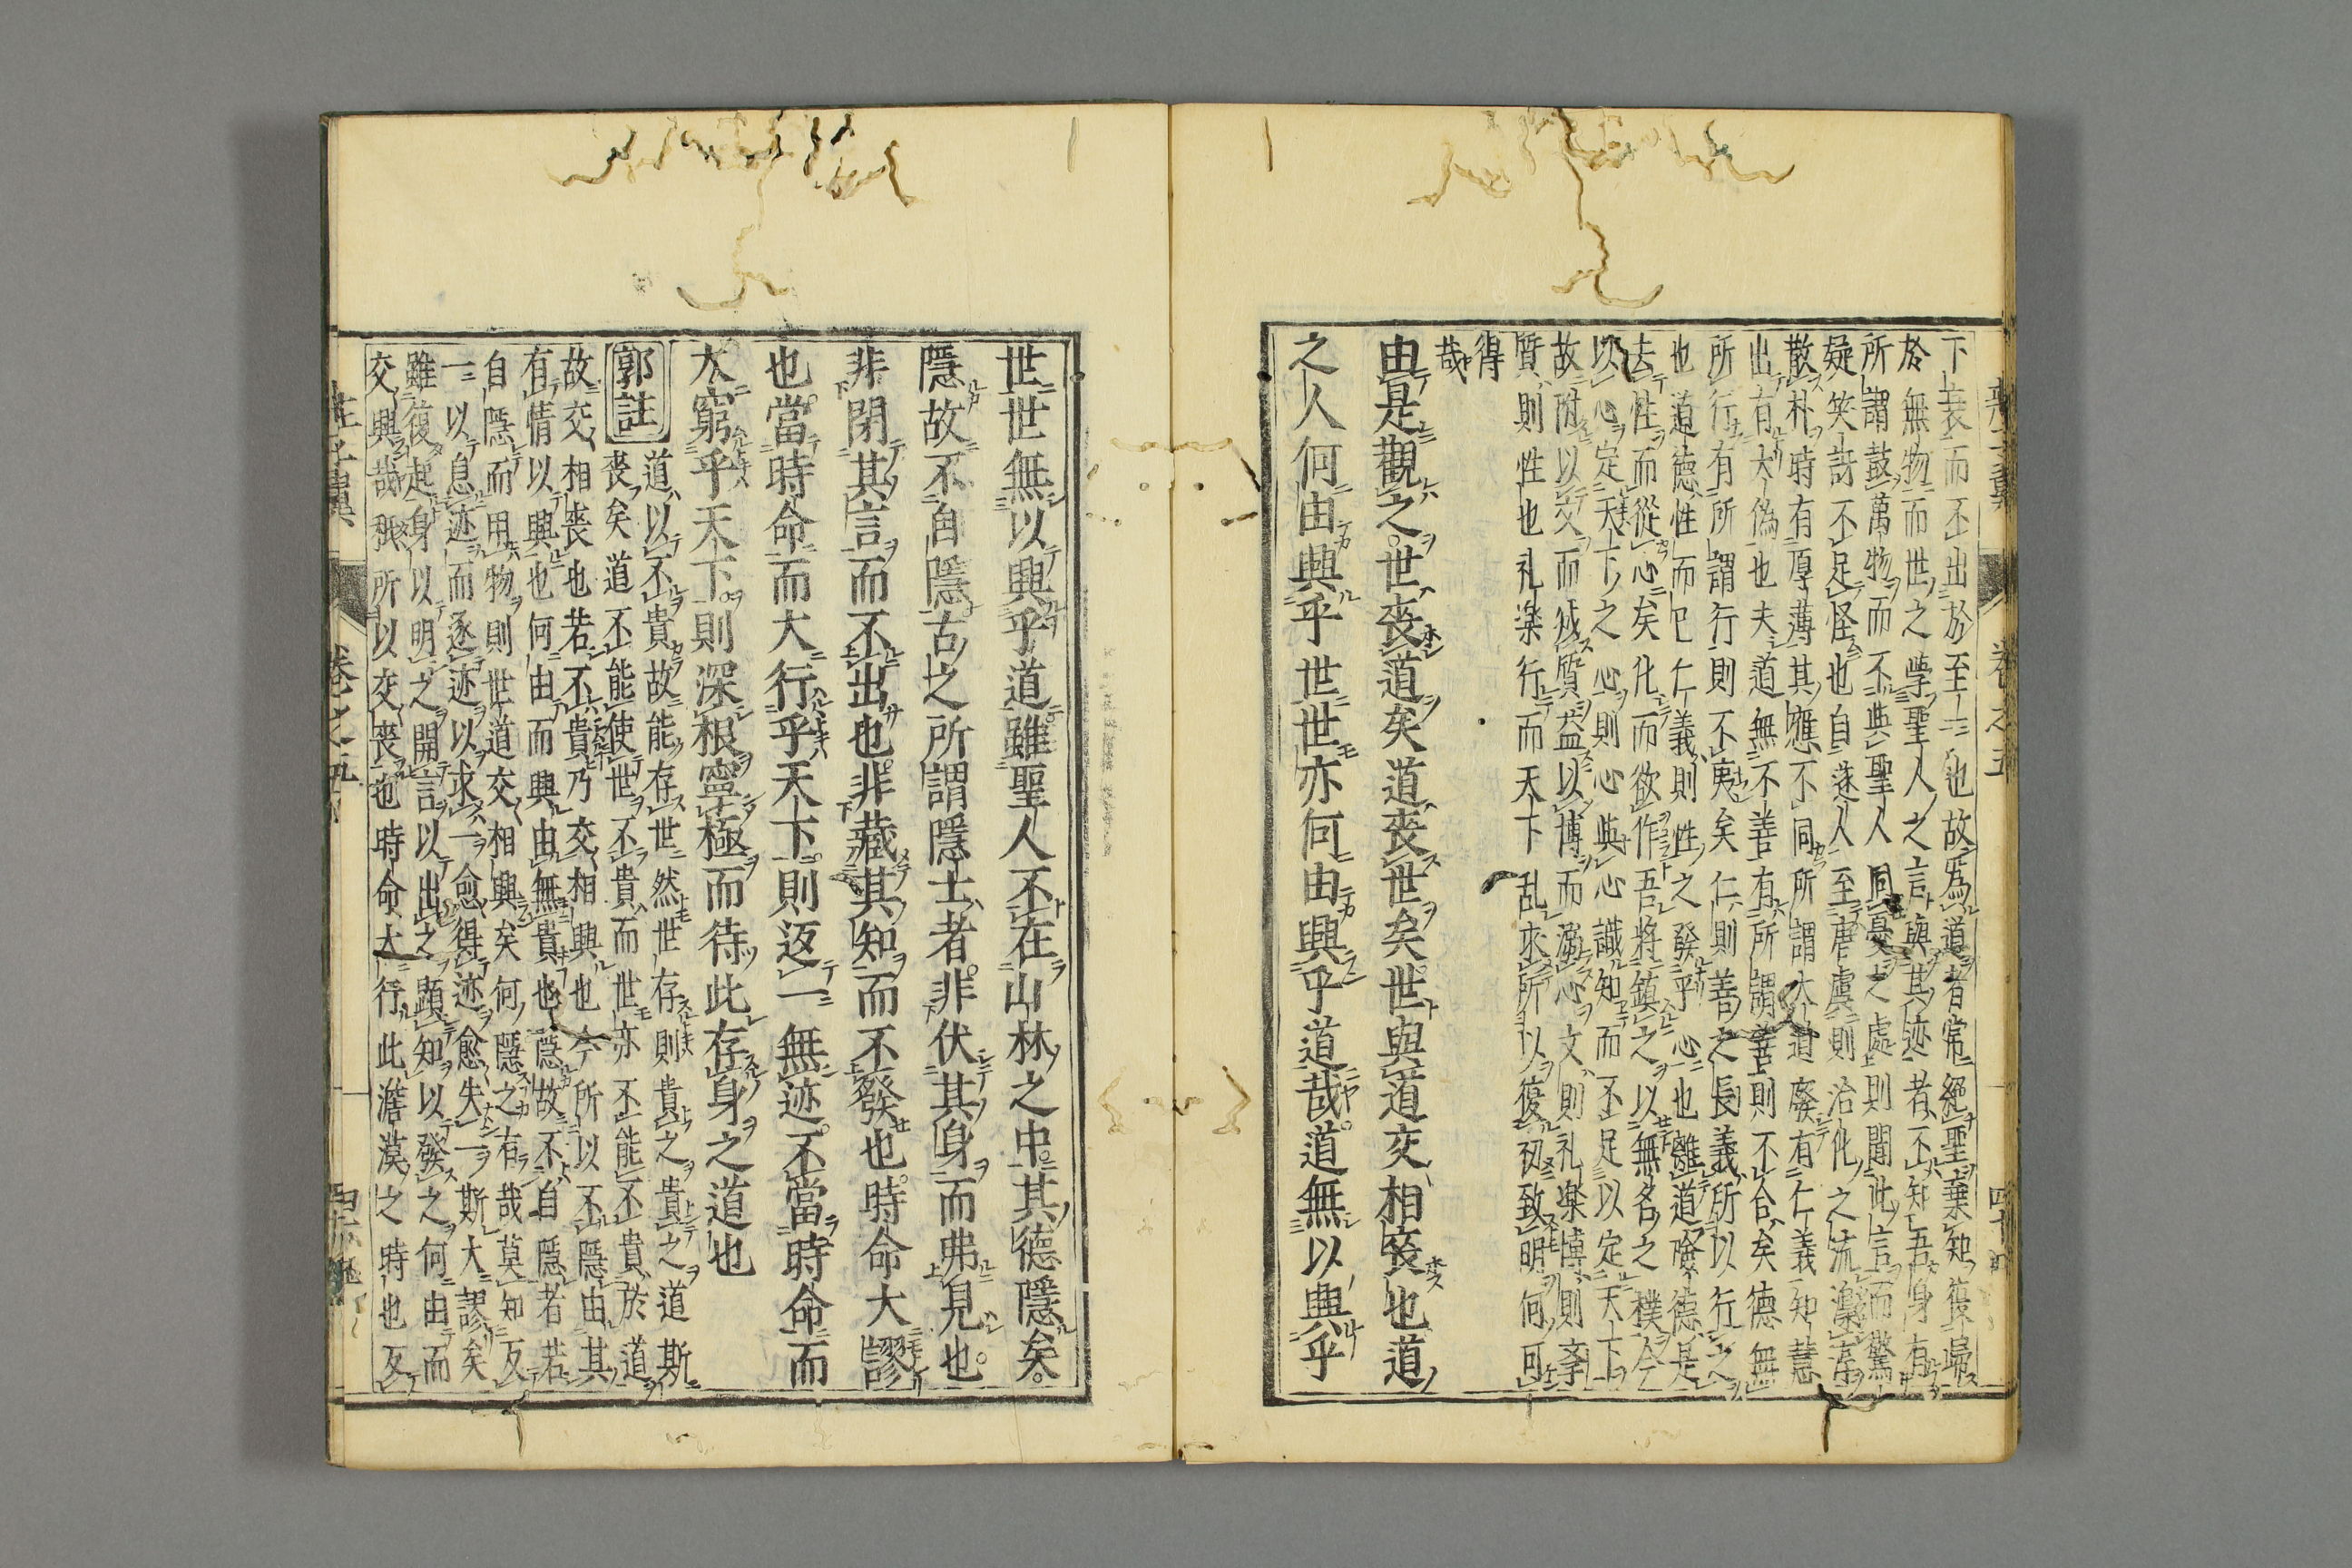 下衰而不出於至一也故爲道者常絕聖棄知復歸
於無物而世之學聖人之言與其迹者不知吾身有
所謂鼓萬物而不與聖人同憂之處則聞此言而驚
疑笑訝不足怪也自遂人至唐虞則治化之流澆淳
散朴時有厚薄其應不同所謂大道廢有仁義知慧
出有大偽也夫道無不善有所謂善則不合矣德無
所行有所謂行則不夷矣仁則善之長義所以行之
也道德性而已仁義則性之發乎心也離道險德是
去性而從心矣化而欲作吾將鎮之以無名之樸今
以心定天下之心則心與心識知而不足以定天下
故附以文而滅質益以博而溺心文則礼楽博則斈
質則性也礼楽行而天下乱來所以復初致明何可
得
哉
由是觀之世喪道矣道喪世矣世與道交相喪也道
之人何由興乎世世亦何由興乎道哉道無以興乎
世世無以興乎道雖聖人不在山林之中其德隱矣
隱故不自隱古之所謂隱士者非伏其身而弗見也
非閉其言而不出也非藏其知而不發也時命大謬
也當時命而大行乎天下則返一無迹不當時命而
大窮乎天下則深根寧極而待此存身之道也
郭註 道以不貴故能存世然世存則貴之貴之道斯
喪矣道不能使世不貴而世亦不能不貴於道
故交相喪也若不貴乃交相興也今所以不隱由其
有情以興也何由而興由無貴也隱故不自隱若若
自隱而用物則世道交相興矣何隱之有哉莫知反
一以息迹而逐迹以求一愈得迹愈失一斯大謬矣
雖復起身以明之開言以出之顯知以發之何由而
交興哉秪所以交喪也時命大行此澹漠之時也反